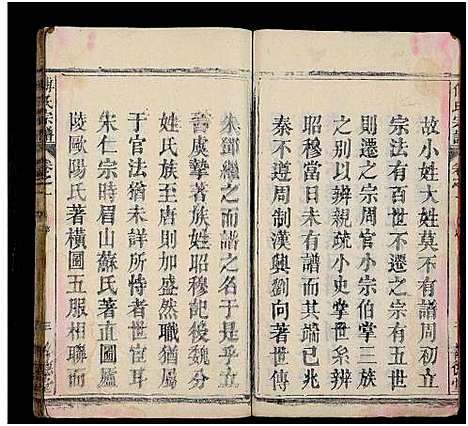 故小姓大姓莫不有譜周初立
宗法有百世不遷之宗有五世
則遷之宗周官小宗伯掌三族
之別以辨親疏小史掌世系辨
昭穆當日有譜而其端已兆
秦不遵周制漢興劉向著世傳
朱鄧繼之而譜之名于是乎立
晉虞摯著族姓昭穆記後魏分
姓氏族至唐則加盛然職猶屬
于官法猶未詳所恃者世官耳
宋仁宗時眉山蘇氏著直圖廬
陵歐陽氏著橫圖五服相聯而
傅氏宗譜 卷之一